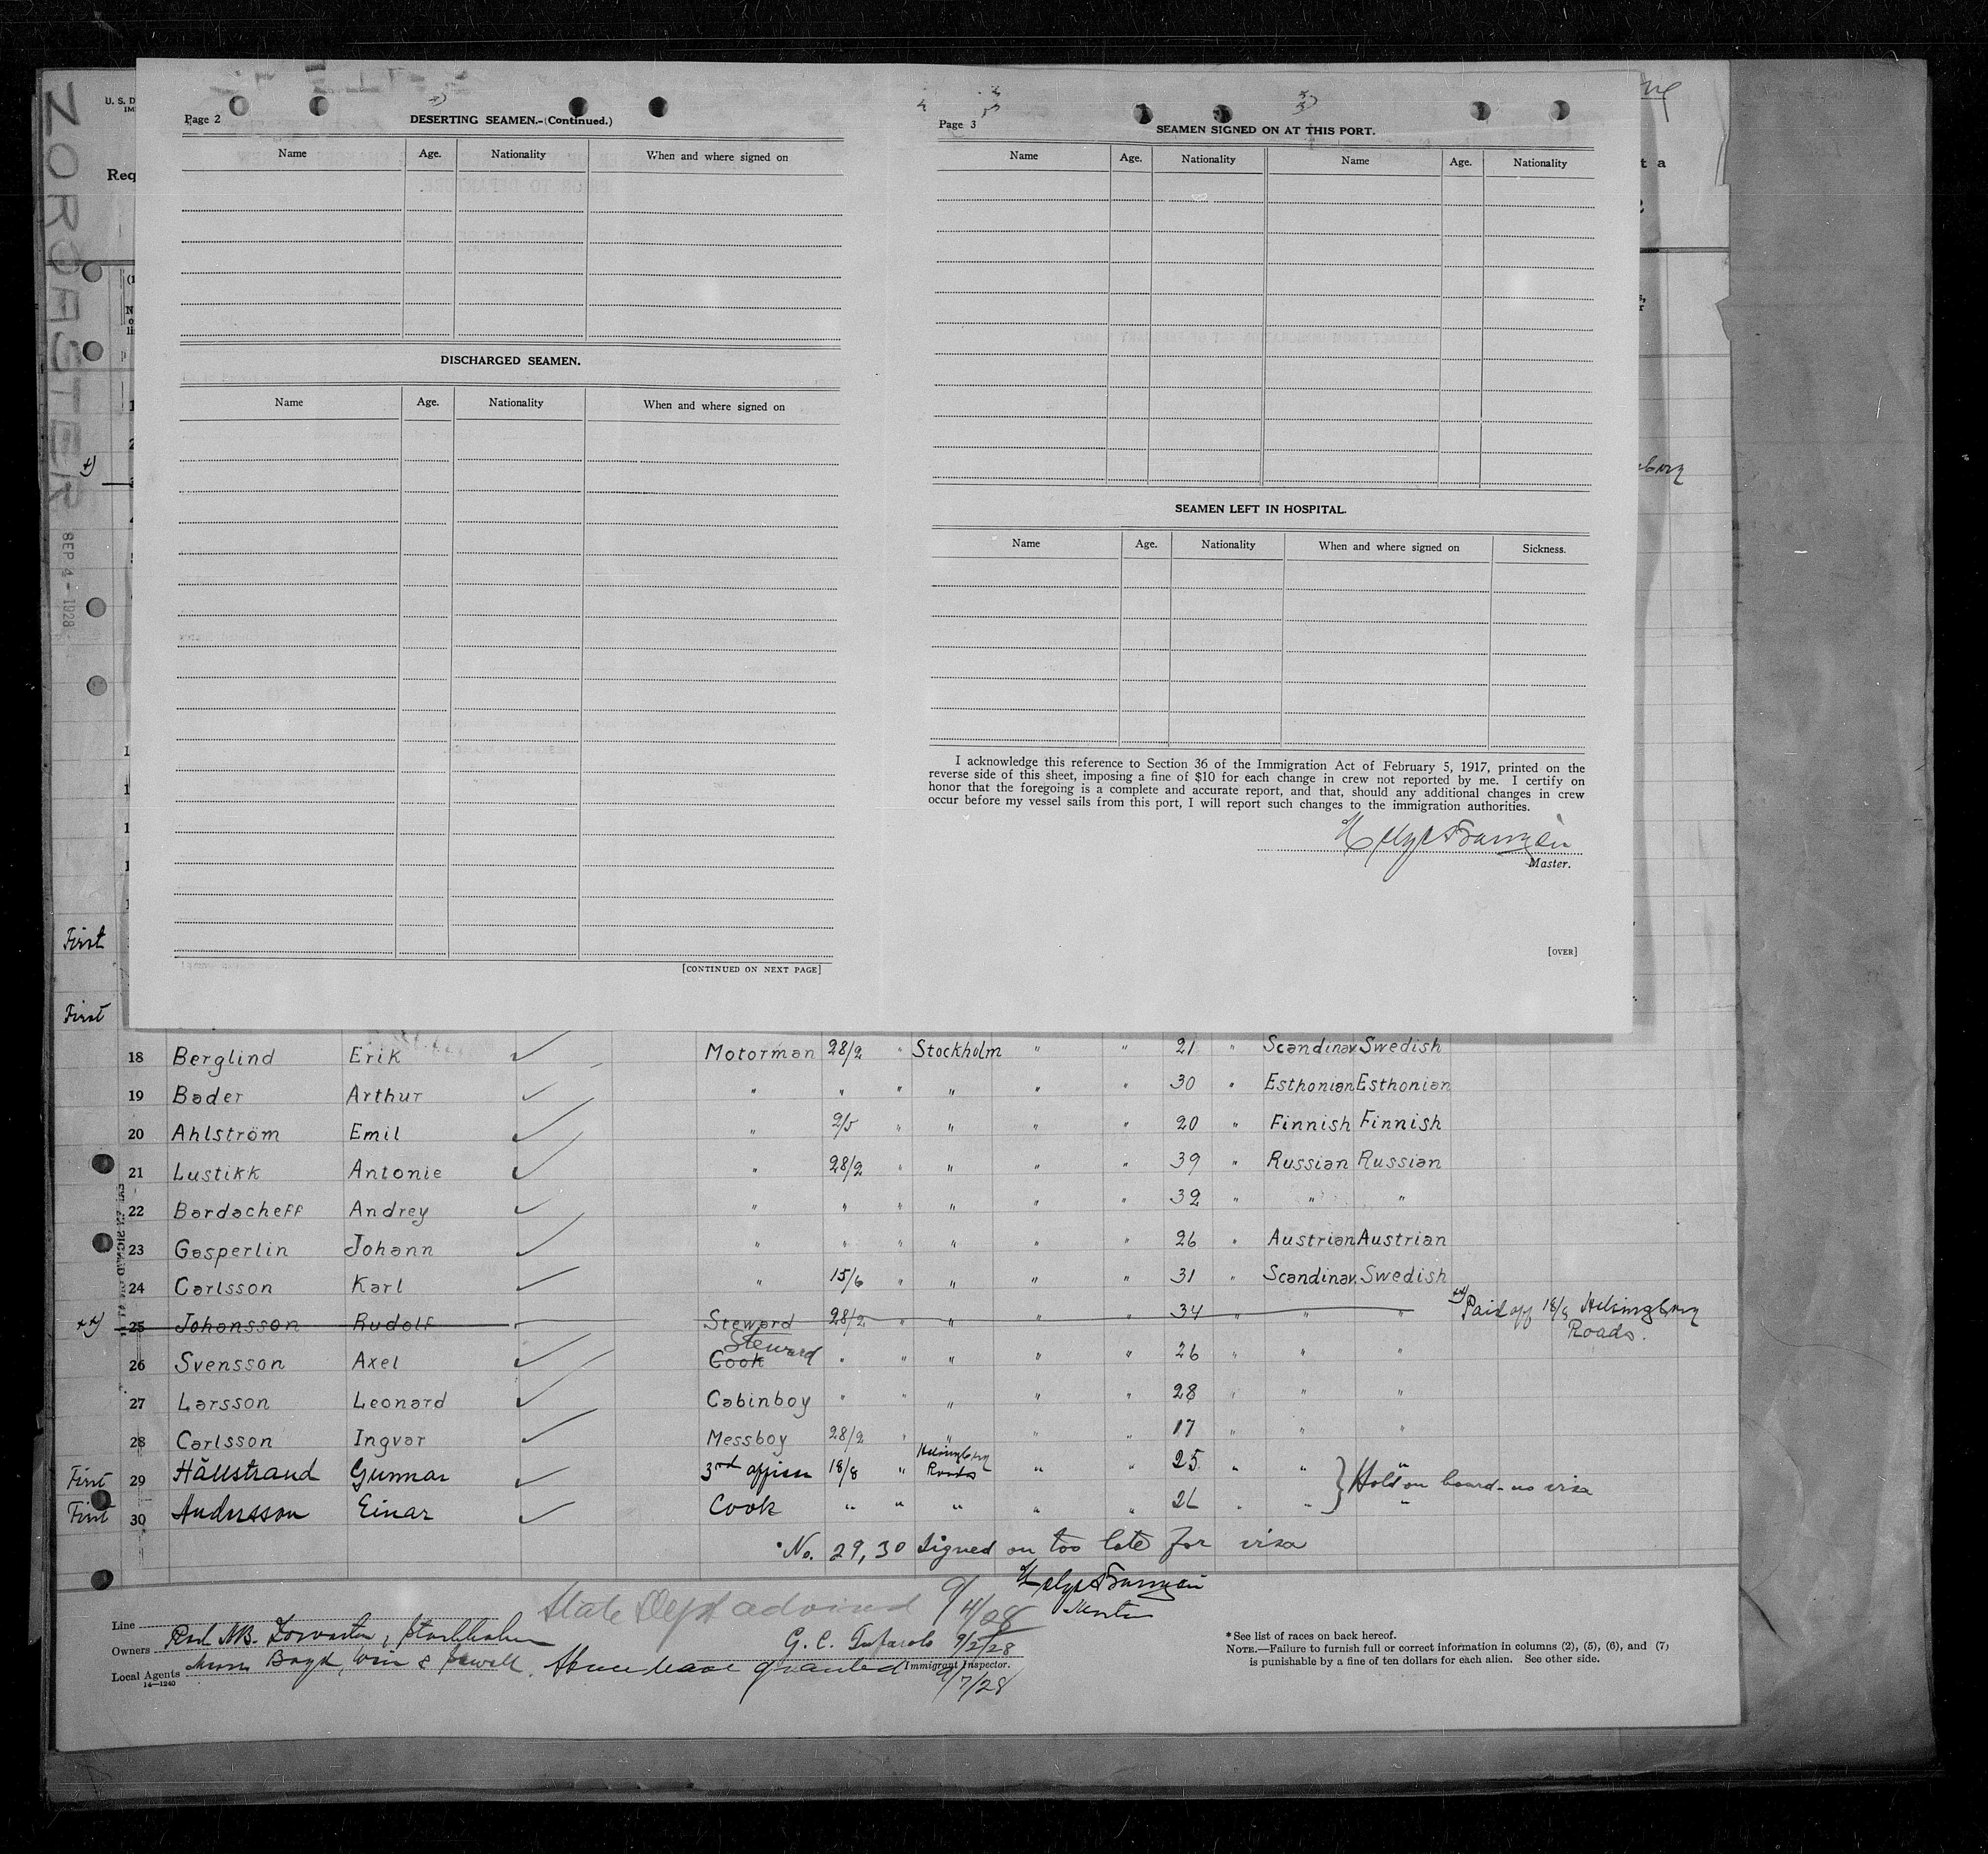 ZOROASTER
SEP 4 - 1928
U. S. D
IM
Req
Page 2
DESERTING SEAMEN.-(Continued.)
Name Age. Nationality When and where signed on
DISCHARGED SEAMEN.
Name Age. Nationality When and where signed on
[CONTINUED ON NEXT PAGE]
Page 3
SEAMEN SIGNED ON AT THIS PORT.
Name Age. Nationality Name Age. Nationality
SEAMEN LEFT IN HOSPITAL.
Name Age. Nationality When and where signed on Sickness.
I acknowledge this reference to Section 36 of the Immigration Act of February 5, 1917, printed on the
reverse side of this sheet, imposing a fine of $10 for each change in crew not reported by me. I certify on
honor that the foregoing is a complete and accurate report, and that, should any additional changes in crew
occur before my vessel sails from this port, I will report such changes to the immigration authorities.
Master.
[OVER]
t a
First
First
18 Berglind Erik Motorman 28/2 " Stockholm " " 21 " Scandinav. Swedish
19 Bader Arthur " " " " " " 30 " Esthonian Esthonian
20 Ahlström Emil " 2/5 " " " " 20 " Finnish Finnish
21 Lustikk Antonie " 28/2 " " " " 39 " Russian Russian
22 Bardacheff Andrey " " " " " " 32 " " "
23 Gasperlin Johann " " " " " " 26 " Austrian Austrian
24 Carlsson Karl " 15/6 " " " " 31 " Scandinav. Swedish
xx) 25 Johansson Rudolf Steward 28/2 " " " " 34 " " " xx) Paid off 18/8 Helsingborg
Roads.
Steward
26 Svensson Axel Cook " " " " " 26 " " "
27 Larsson Leonard Cabinboy " " " " " 28 " " "
28 Carlsson Ingvar Messboy 28/2 " " " " 17 " " "
First 29 Hällstrand Gunnar 3rd officer 18/8 " Helsingborg Roads " " 25 " " "
Hold on board - no visa
First 30 Andersson Einar Cook " " " " " 26 " " "
No. 29, 30 Signed on too late for visa
Master
State Dept advised 9/4/28
Line
Owners Red. A/B.
Local Agents Messrs Boyd, Weir & Sewell. Shore leave granted
9/7/28
14—1240
9/2/28
Immigrant Inspector.
*See list of races on back hereof.
NOTE.—Failure to furnish full or correct information in columns (2), (5), (6), and (7)
is punishable by a fine of ten dollars for each alien. See other side.